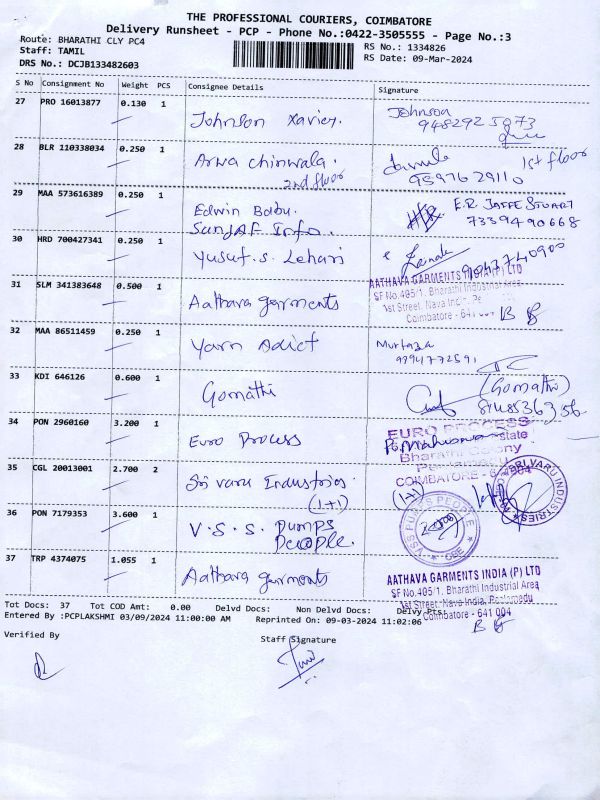 THE PROFESSIONAL COURIERS, COIMBATORE
Delivery Runsheet - PCP - Phone No.:0422-3505555 - Page No.:3
Route: BHARATHI CLY PC4
Staff: TAMIL
DRS No.: DCJB133482603
RS No.: 1334826
RS Date: 09-Mar-2024
S No Consignment No Weight PCS Consignee Details Signature
27 PRO 16013877 0.130 1 Johnson Xavier. Johnson
28 BLR 110338034 0.250 1 Arwa Chinwala. 1st floor
2nd floor 9597629110
29 MAA 573616389 0.250 1 Edwin Babu. E.R. JAFFE STUART
Sunjaf Info. 7339490668
30 HRD 700427341 0.250 1 Yusuf.S. Lehari 9047740900
31 SLM 341383648 0.500 1 Aathava garments AATHAVA GARMENTS INDIA (P) LTD
SF No.405/1, Bharathi Industrial Area
1st Street, Nava India, Pe
Coimbatore - 641
32 MAA 86511459 0.250 1 Yarn Adict Murtaza
9994772591
33 KDI 646126 0.600 1 Gomathi (Gomathi)
34 PON 2960160 3.200 1 Euro Process EURO PROCESS
Bharathi Colony
COIMBATORE
35 CGL 20013001 2.700 2 Sri varu Industries (1+1)
(1+1) SRI VARU INDUSTRIES
36 PON 7179353 3.600 1 V.S.S. Pumps
People. VSS PUMPS PEOPLE
CBE
37 TRP 4374075 1.055 1 Aathava garments AATHAVA GARMENTS INDIA (P) LTD
SF No.405/1, Bharathi Industrial Area
1st Street, Nava India, Peelamedu
Coimbatore - 641 004
Tot Docs: 37 Tot COD Amt: 0.00 Delvd Docs: Non Delvd Docs: Delvy Pts:
Entered By :PCPLAKSHMI 03/09/2024 11:00:00 AM Reprinted On: 09-03-2024 11:02:06
Verified By Staff Signature